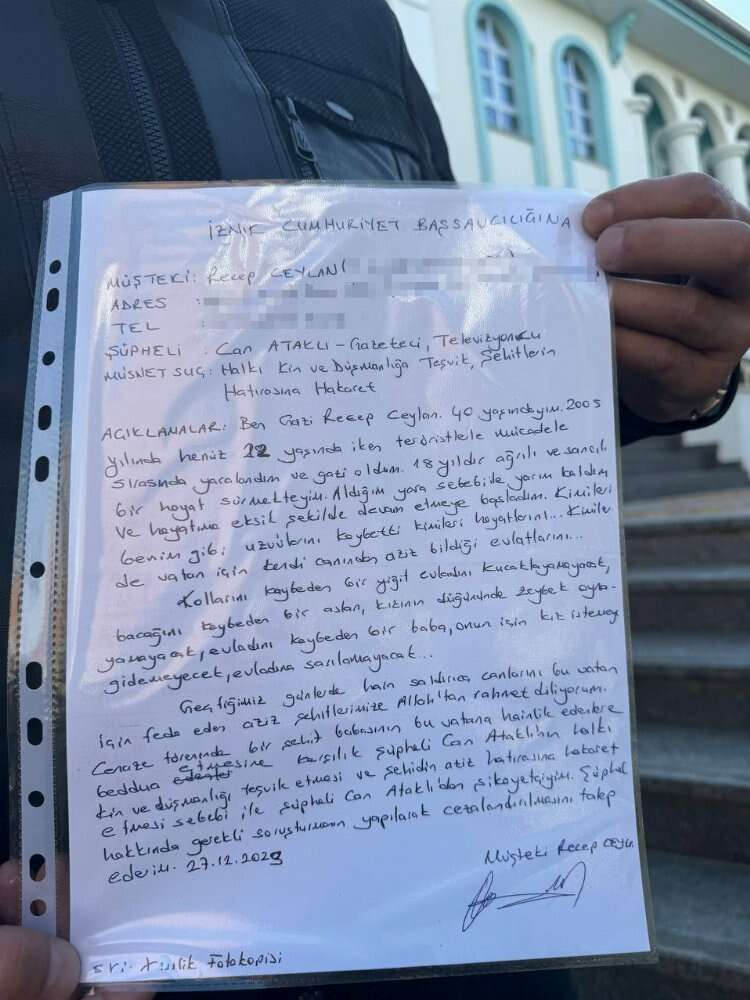 İZNİK CUMHURİYET BAŞSAVCILIĞINA
MÜŞTEKİ: Recep CEYLAN(
ADRES :
TEL :
ŞÜPHELİ : Can ATAKLI-Gazeteci, Televizyoncu
MÜSNET SUÇ: Halkı Kin ve Düşmanlığa Teşvik, Şehitlerin
Hatırasına Hakaret
AÇIKLAMALAR: Ben Gazi Recep Ceylan. 40 yaşındayım. 2005
yılında henüz 22 yaşında iken teröristlerle mücadele
sırasında yaralandım ve gazi oldum. 18 yıldır ağrılı ve sancılı
bir hayat sürmekteyim. Aldığım yara sebebi ile yarım kaldım
ve hayatıma eksik şekilde devam etmeye başladım. Kimileri
benim gibi uzuvlarını kaybetti kimileri hayatlarını... Kimileri
de vatan için kendi canından aziz bildiği evlatlarını...
Kollarını kaybeden bir yiğit evladını kucaklayamayacak,
bacağını kaybeden bir aslan, kızının düğününde zeybek oyna-
yamayacak, evladını kaybeden bir baba, onun için kız istemeye
gidemeyecek, evladına sarılamayacak...
Geçtiğimiz günlerde hain saldırıca canlarını bu vatan
için feda eden aziz şehitlerimize Allah'tan rahmet diliyorum.
Cenaze töreninde bir şehit babasının bu vatana hainlik edenlere
beddua etmesine karşılık şüpheli Can Ataklı'nın halkı
kin ve düşmanlığı teşvik etmesi ve şehidin aziz hatırasına hakaret
etmesi sebebi ile şüpheli Can Ataklı'dan şikayetçiyim. Şüpheli
hakkında gerekli soruşturmanın yapılarak cezalandırılmasını talep
ederim. 27.12.2023
Müşteki Recep CEYLAN
Fotokopisi